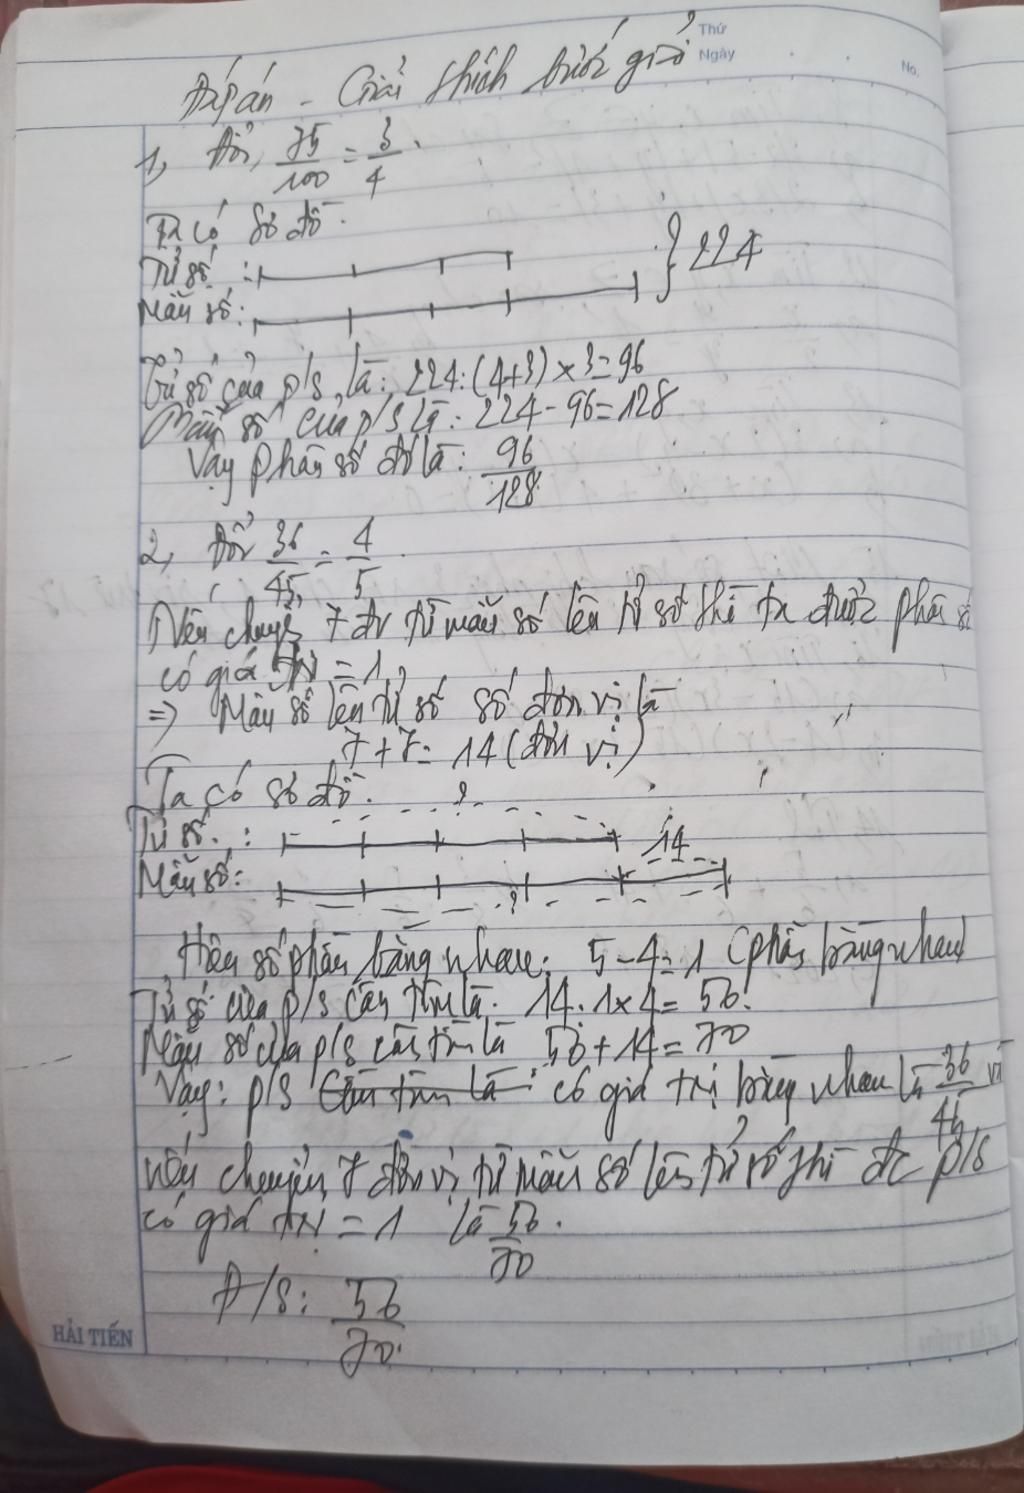 Thứ
Ngày
No.
Đáp án - Giải thích bước giải
1, Đổi, 75/100 = 3/4.
Ta có sơ đồ.
Tử số :
} 224
Mẫu số:
Tử số của p/s là: 224:(4+3)×3=96
Mẫu số của p/s là: 224-96=128
Vậy phân số đó là: 96/128
2, Đổi 36/45 = 4/5
Nếu chuyển 7 đv từ mẫu số lên tử số thì ta được phân số
có giá trị = 1,
=> Mẫu số lên tử số số đơn vị là
7+7= 14 (đơn vị)
Ta có sơ đồ. ?
Tử số. : 14
Mẫu số: ?
Hiệu số phần bằng nhau: 5-4=1 (phần bằng nhau)
Tử số của p/s cần tìm là. 14:1×4= 56.
Mẫu số của p/s cần tìm là 56+14=70
Vậy: p/s cần tìm là: có giá trị bằng nhau là 36/45 và
nếu chuyển 7 đơn vị từ mẫu số lên tử số thì đc p/s
có giá trị = 1 là 56/70.
Đ/S: 56/70.
HẢI TIẾN